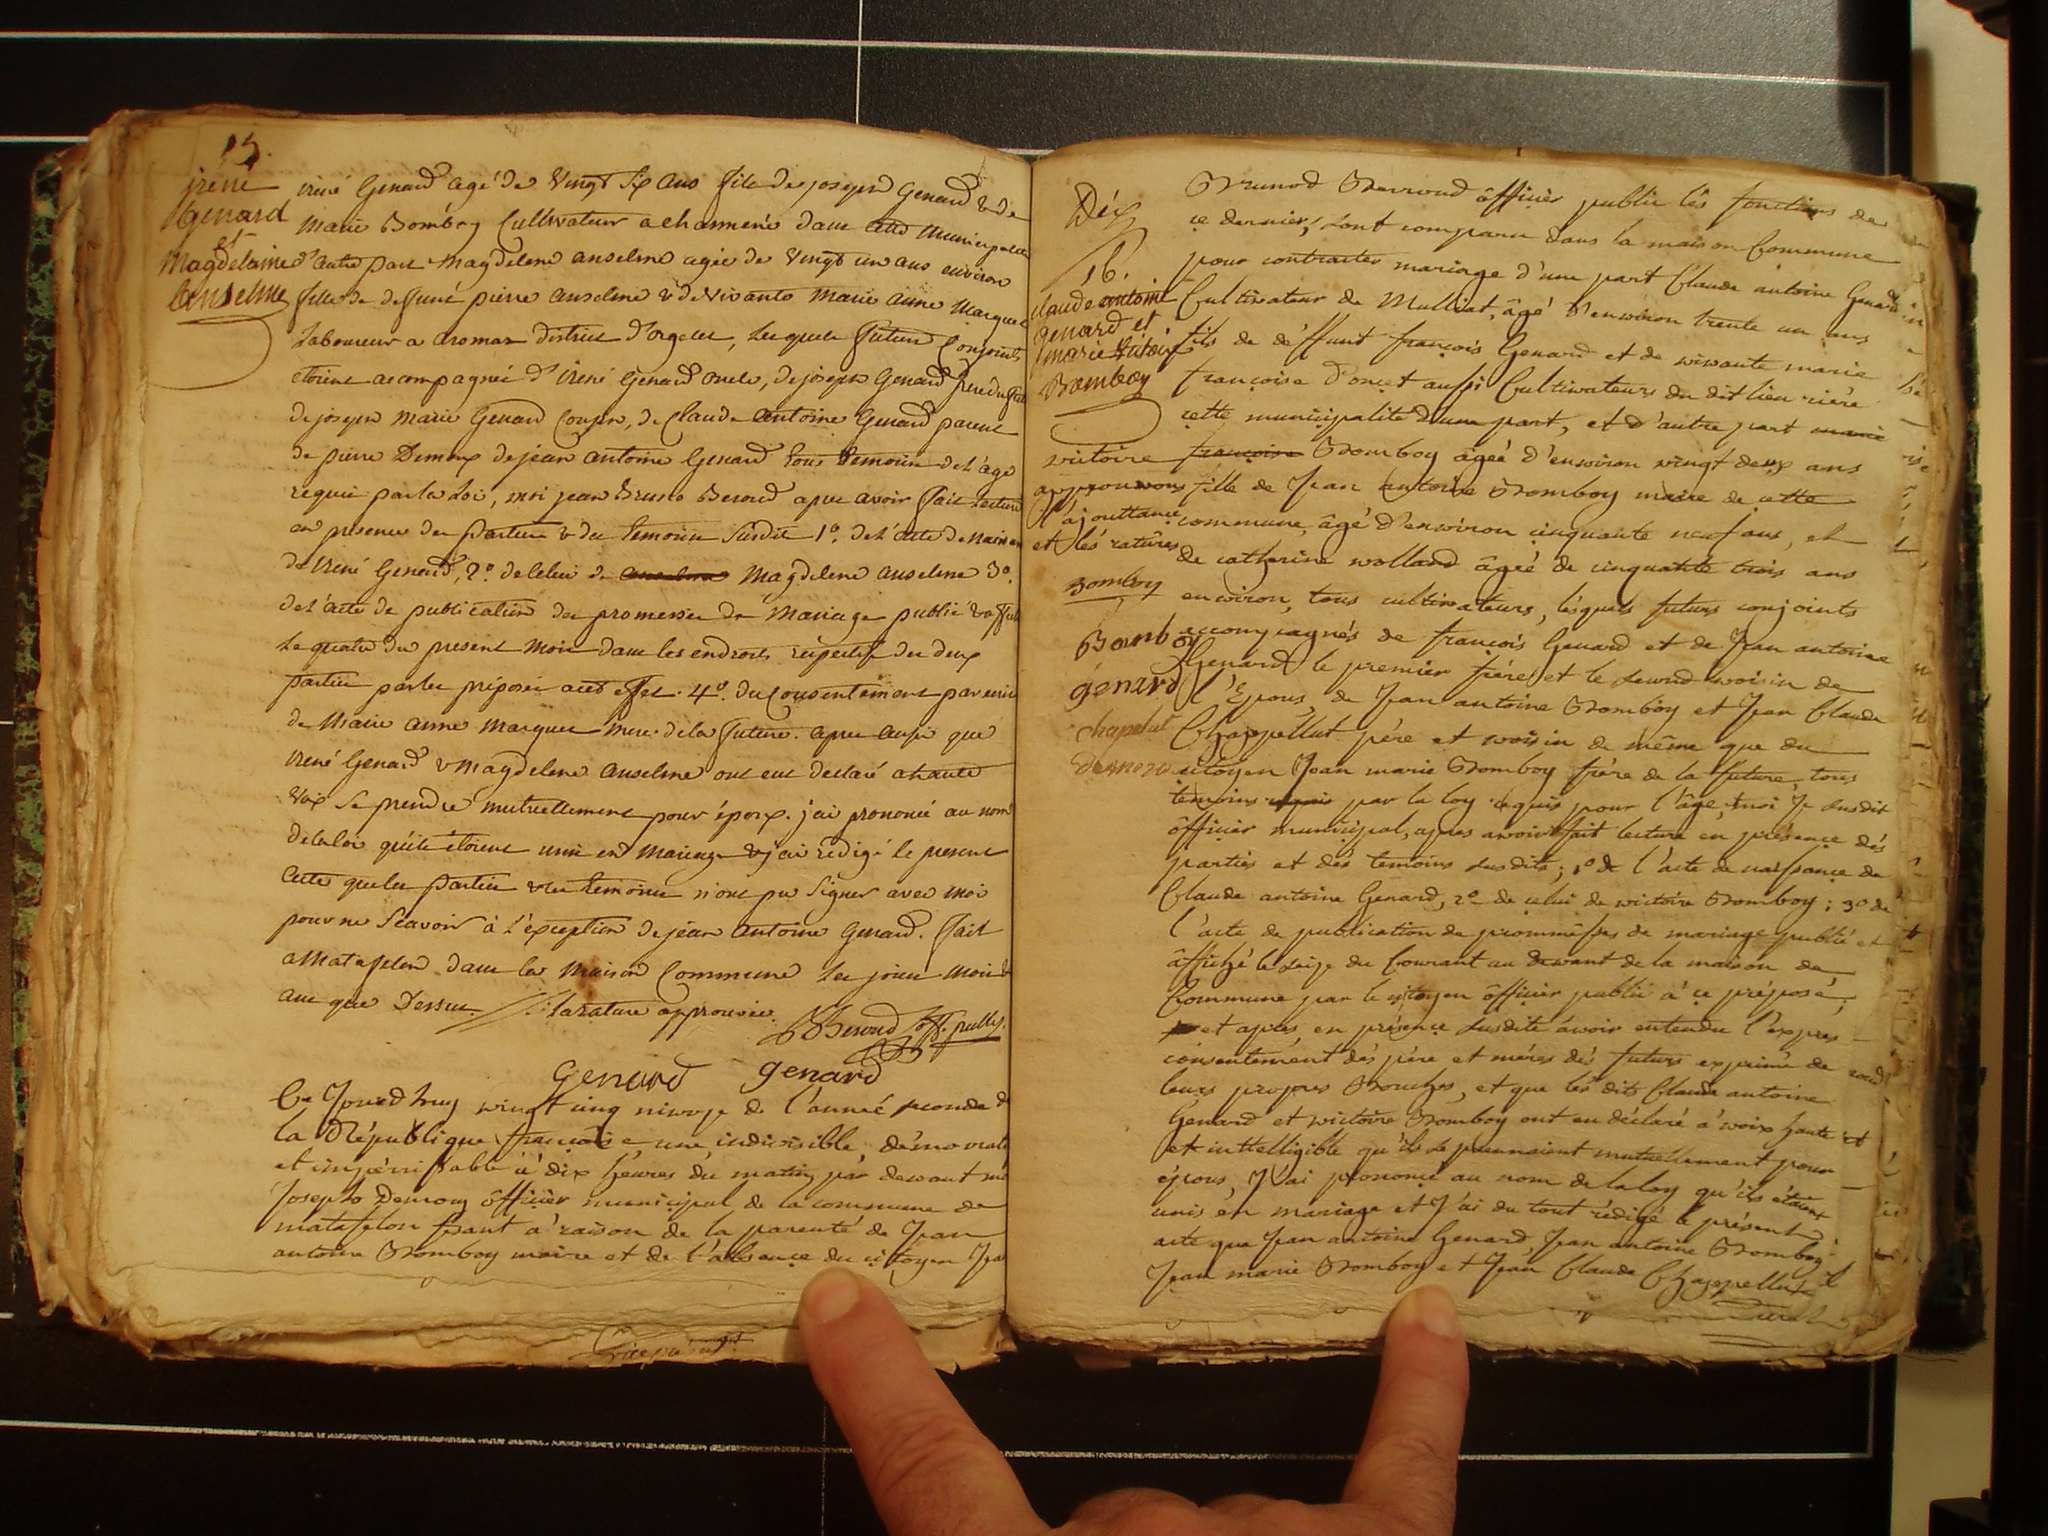 15.
irené
Genard
et
Magdelaine
Anselme
irené Genard agé de vingt six ans fils de joseph Genard & de
Marie Bomboy Cultivateur a charmené dans cette municipalité
d'autre part Magdelene anselme agée de vingt un ans environ
fille de defunt pierre anselme & de vivante Marie anne Marquet
Laboureur a aromas district d'orgelet, Lesquels futurs Conjoints
étoient accompagnés d'irené Genard oncle, de joseph Genard frere du futur
de joseph Marie Genard Cousin, de Claude antoine Genard parent
de pierre Demoux de jean antoine Genard tous temoins de l'age
requis par la Loi, moi jean Bruno Beroud apres avoir fait lecture
en presence des parties & des temoins susdits 1º. de l'acte de naissance
de irené Genard, 2º. de celui de anselme Magdelene anselme 3º.
de l'acte de publication des promesses de Mariage publié & affiché
Le quatre du present mois dans les endroits respectifs des deux
parties par les préposés aud effet. 4º. du Consentement par ecrit
de Marie anne Marquet mere de la future. apres aussi que
irené Genard & Magdelene anselme ont eut declaré a haute
voix se prendre mutuellement pour époux. j'ai prononcé au nom
de la loi qu'ils étoient unis en mariage & j'ai rédigé le present
acte que les parties & les temoins n'ont pu signer avec moi
pour ne scavoir à l'exception de jean antoine Genard. fait
a Matafelon dans la Maison Commune les jour mois &
an que Dessus // la rature approuvée.
JBBeroud off. public.
Genard genard
Ce Jourdhuy vingt cinq nivose de l'année seconde de
la République françoise une, indivisible, démocrate
et impérissable à dix heures du matin par devant moi
Joseph Demoug ôfficier municipal de la commune de
matafelon fisant a raison de la parenté de Jean
antoine Bomboy maire et de l'absence du citoyen Jean
Dix
16.
claude antoine
genard et
marie victoire
Bomboy
approuvons
l'ajouttance
et les ratures
Bomboy
Bomboy
génard
chapelut
Demoug
Brunod Berroud ôfficier public lés fonctions de
ce dernier, sont comparu dans la maison Commune
pour contracter mariage d'une part Claude antoine Genard
Cultivateur de Mulliat, âgé d'environ trente un ans
fils de déffunt françois Genard et de vivante marie
françoise d'oncet aussi Cultivateurs du dit lieu rière
cette municipalité d'une part, et d'autre part marie
victoire françoise Bomboy âgée d'environ vingt deux ans
fille de Jean antoine Bomboy maire de cette
commune, âgé d'environ cinquante neuf ans, et
de catherine volland âgée de cinquante trois ans
environ, tous cultivateurs, lésquels futurs conjoints
accompagnés de françois Genard et de Jean antoine
Genard le premier frére et le second voisin de
l'Epous, de Jean antoine Bomboy et Jean Claude
Chappellut pére et voisin de même que du
citoyen Jean marie Bomboy frére de la future, tous
temoins requis par la loy requis pour l'âge, moi J susdit
ôfficier municipal, apres avoir fait lecture en présence dés
parties et dés temoins susdits; 1º de l'acte de naissance de
Claude antoine Genard, 2º de celui de victoire Bomboy; 3º de
l'acte de publication de prommésses de mariage publié et
âffiché le seize du Courant au devant de la maison de
Commune par le citoyen ôfficier public à ce préposé,
et apres en présence susdite avoir entendu l'expres
consentement dés pére et méres dés futurs exprimé de
leurs propres Bouches, et que lés dits Claude antoine
Genard et victoire Bomboy ont eu déclaré à voix haute et
et inttelligible qu'ils se prennoient mutuellement pour
épous, J'ai prononcé au nom de la loy qu'ils étoient
unis en mariage et J'ai du tout rédigé le présent
acte que Jean antoine Genard, Jean antoine Bomboy
Jean marie Bomboy et Jean Claude Chappellut